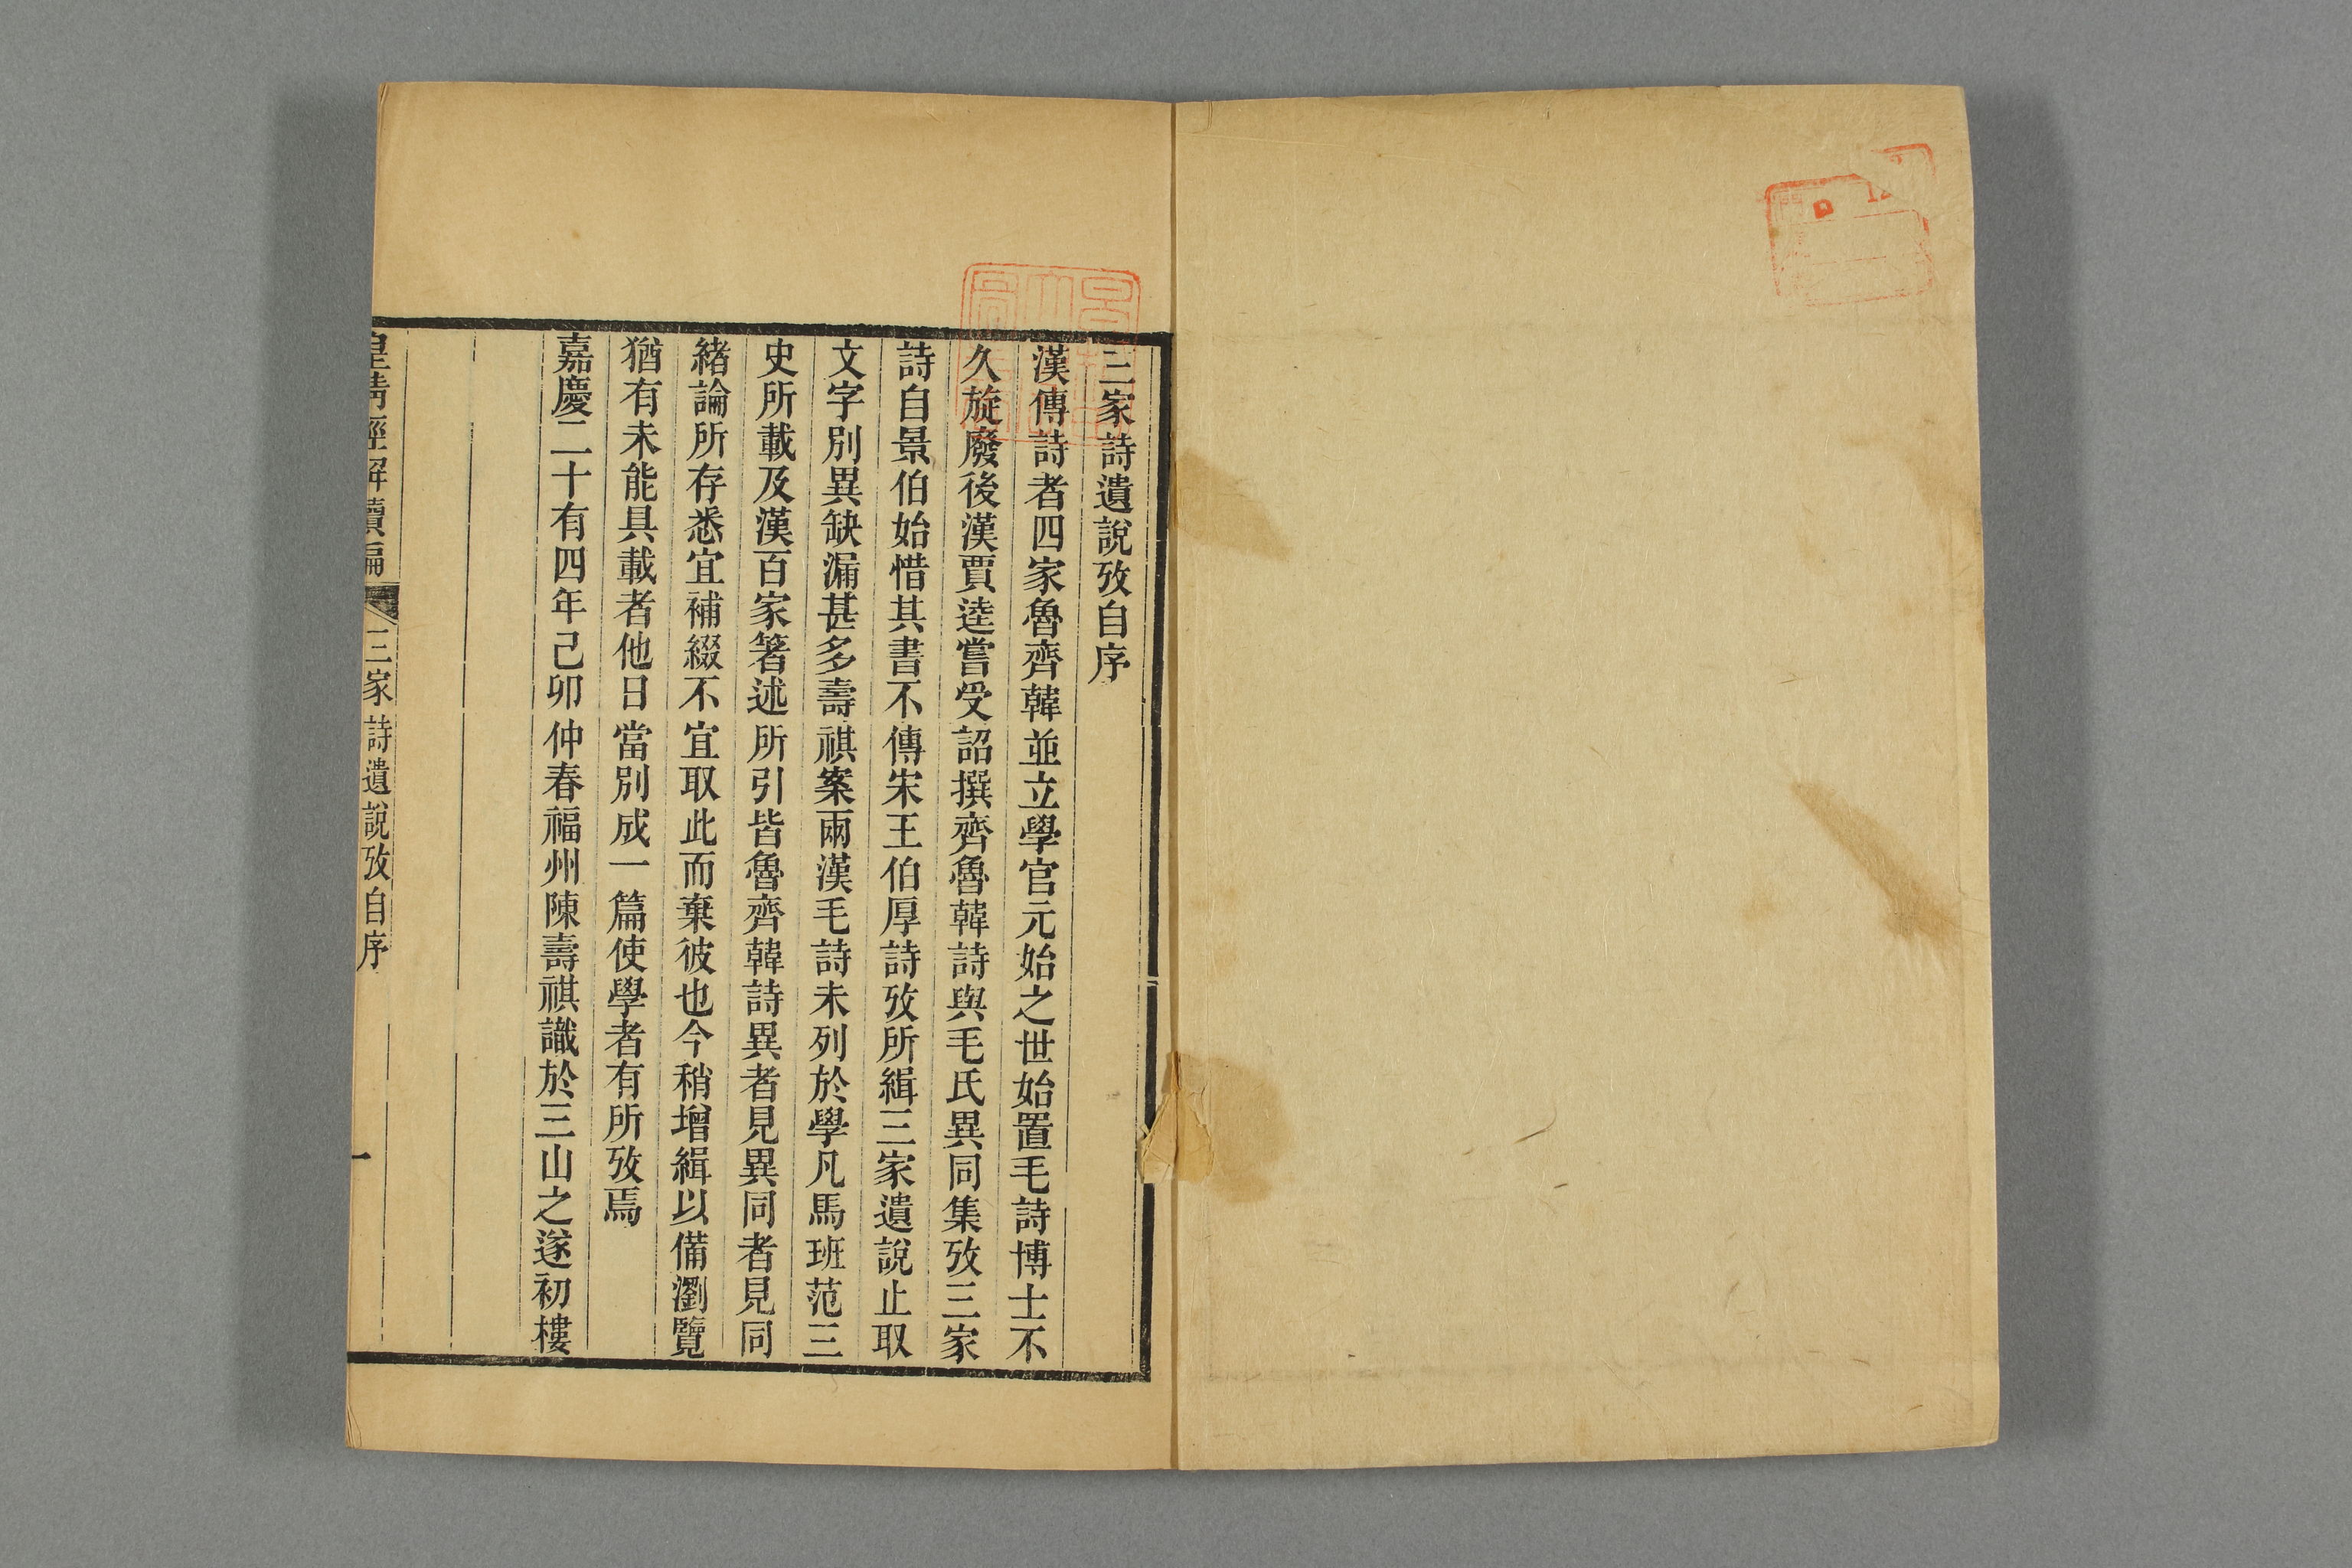 三家詩遺說攷自序
漢傳詩者四家魯齊韓並立學官元始之世始置毛詩博士不
久旋廢後漢賈逵嘗受詔撰齊魯韓詩與毛氏異同集攷三家
詩自景伯始惜其書不傳宋王伯厚詩攷所緝三家遺說止取
文字別異缺漏甚多壽祺案兩漢毛詩未列於學凡馬班范三
史所載及漢百家箸述所引皆魯齊韓詩異者見異同者見同
緒論所存悉宜補綴不宜取此而棄彼也今稍增緝以備瀏覽
猶有未能具載者他日當別成一篇使學者有所攷焉
嘉慶二十有四年己卯仲春福州陳壽祺識於三山之遂初樓
皇清經解續編
三家詩遺說攷自序
一